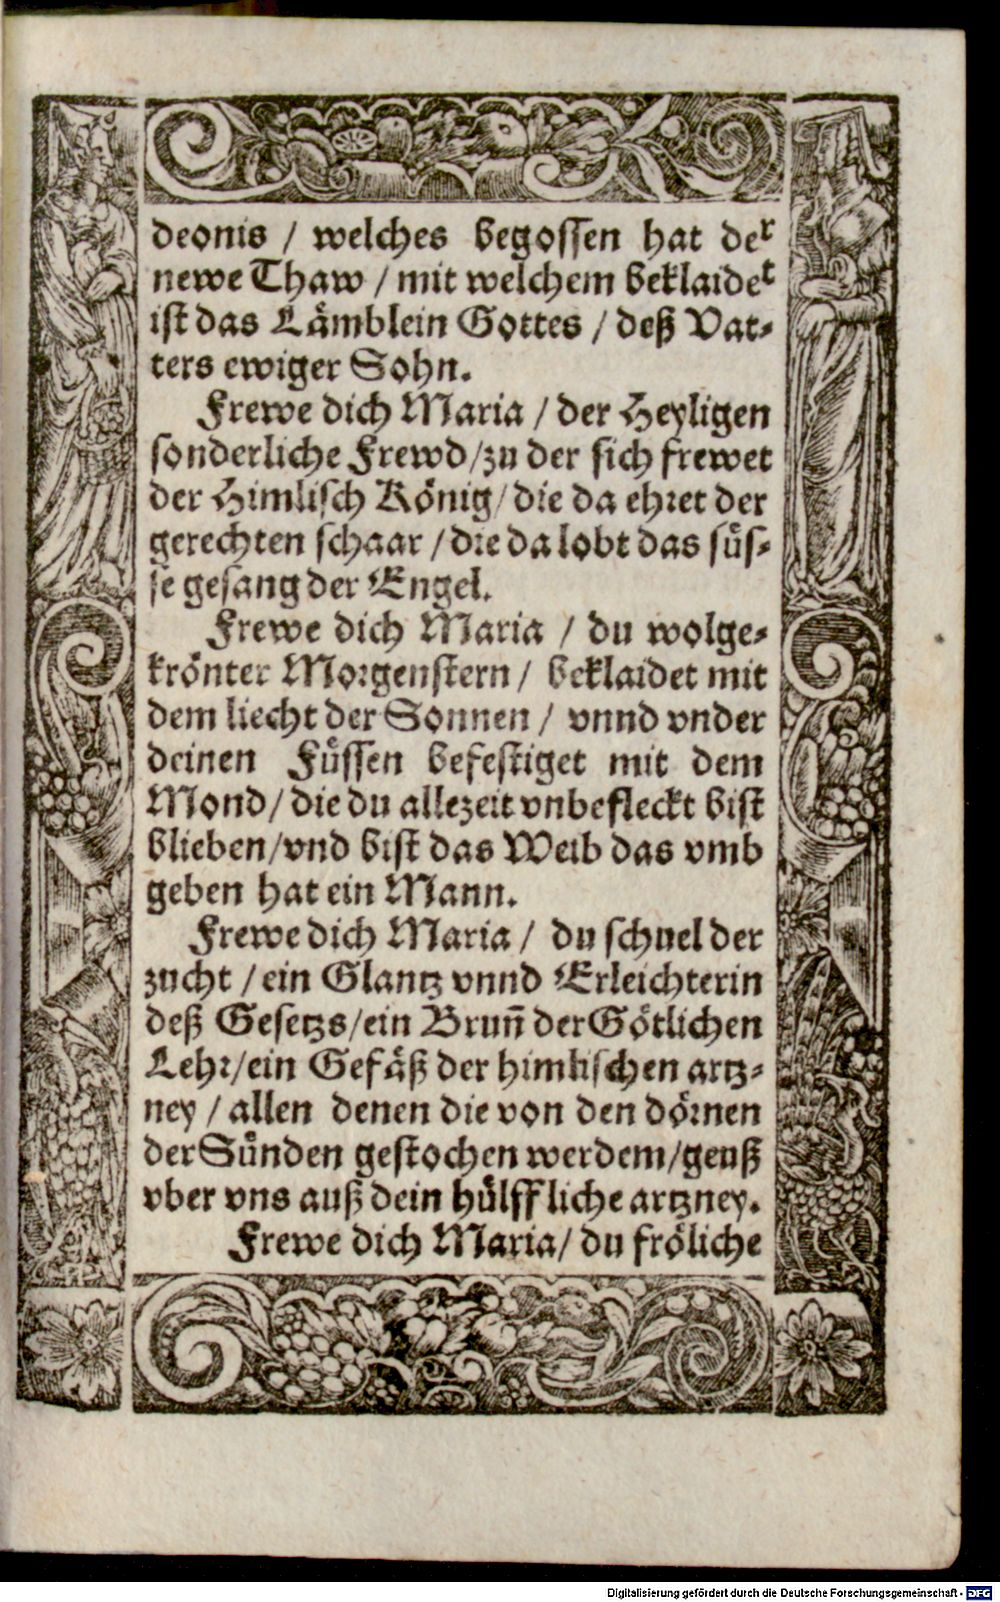 deonis / welches begossen hat der
newe Thaw / mit welchem beklaidet
ist das Lämblein Gottes / deß Vat-
ters ewiger Sohn.
Frewe dich Maria / der Heyligen
sonderliche Frewd/zu der sich frewet
der Himlisch König/die da ehret der
gerechten schaar / die da lobt das süs-
se gesang der Engel.
Frewe dich Maria / du wolge-
krönter Morgenstern / beklaidet mit
dem liecht der Sonnen / vnnd vnder
deinen Füssen befestiget mit dem
Mond/die du allezeit vnbefleckt bist
blieben/vnd bist das Weib das vmb
geben hat ein Mann.
Frewe dich Maria / du schuel der
zucht / ein Glantz vnnd Erleichterin
deß Gesetzs/ein Brun̄ der Götlichen
Lehr/ein Gefäß der himlischen artz-
ney / allen denen die von den dörnen
der Sünden gestochen werdem/geuß
vber vns auß dein hülffliche artzney.
Frewe dich Maria/ du fröliche
Digitalisierung gefördert durch die Deutsche Forschungsgemeinschaft - DFG